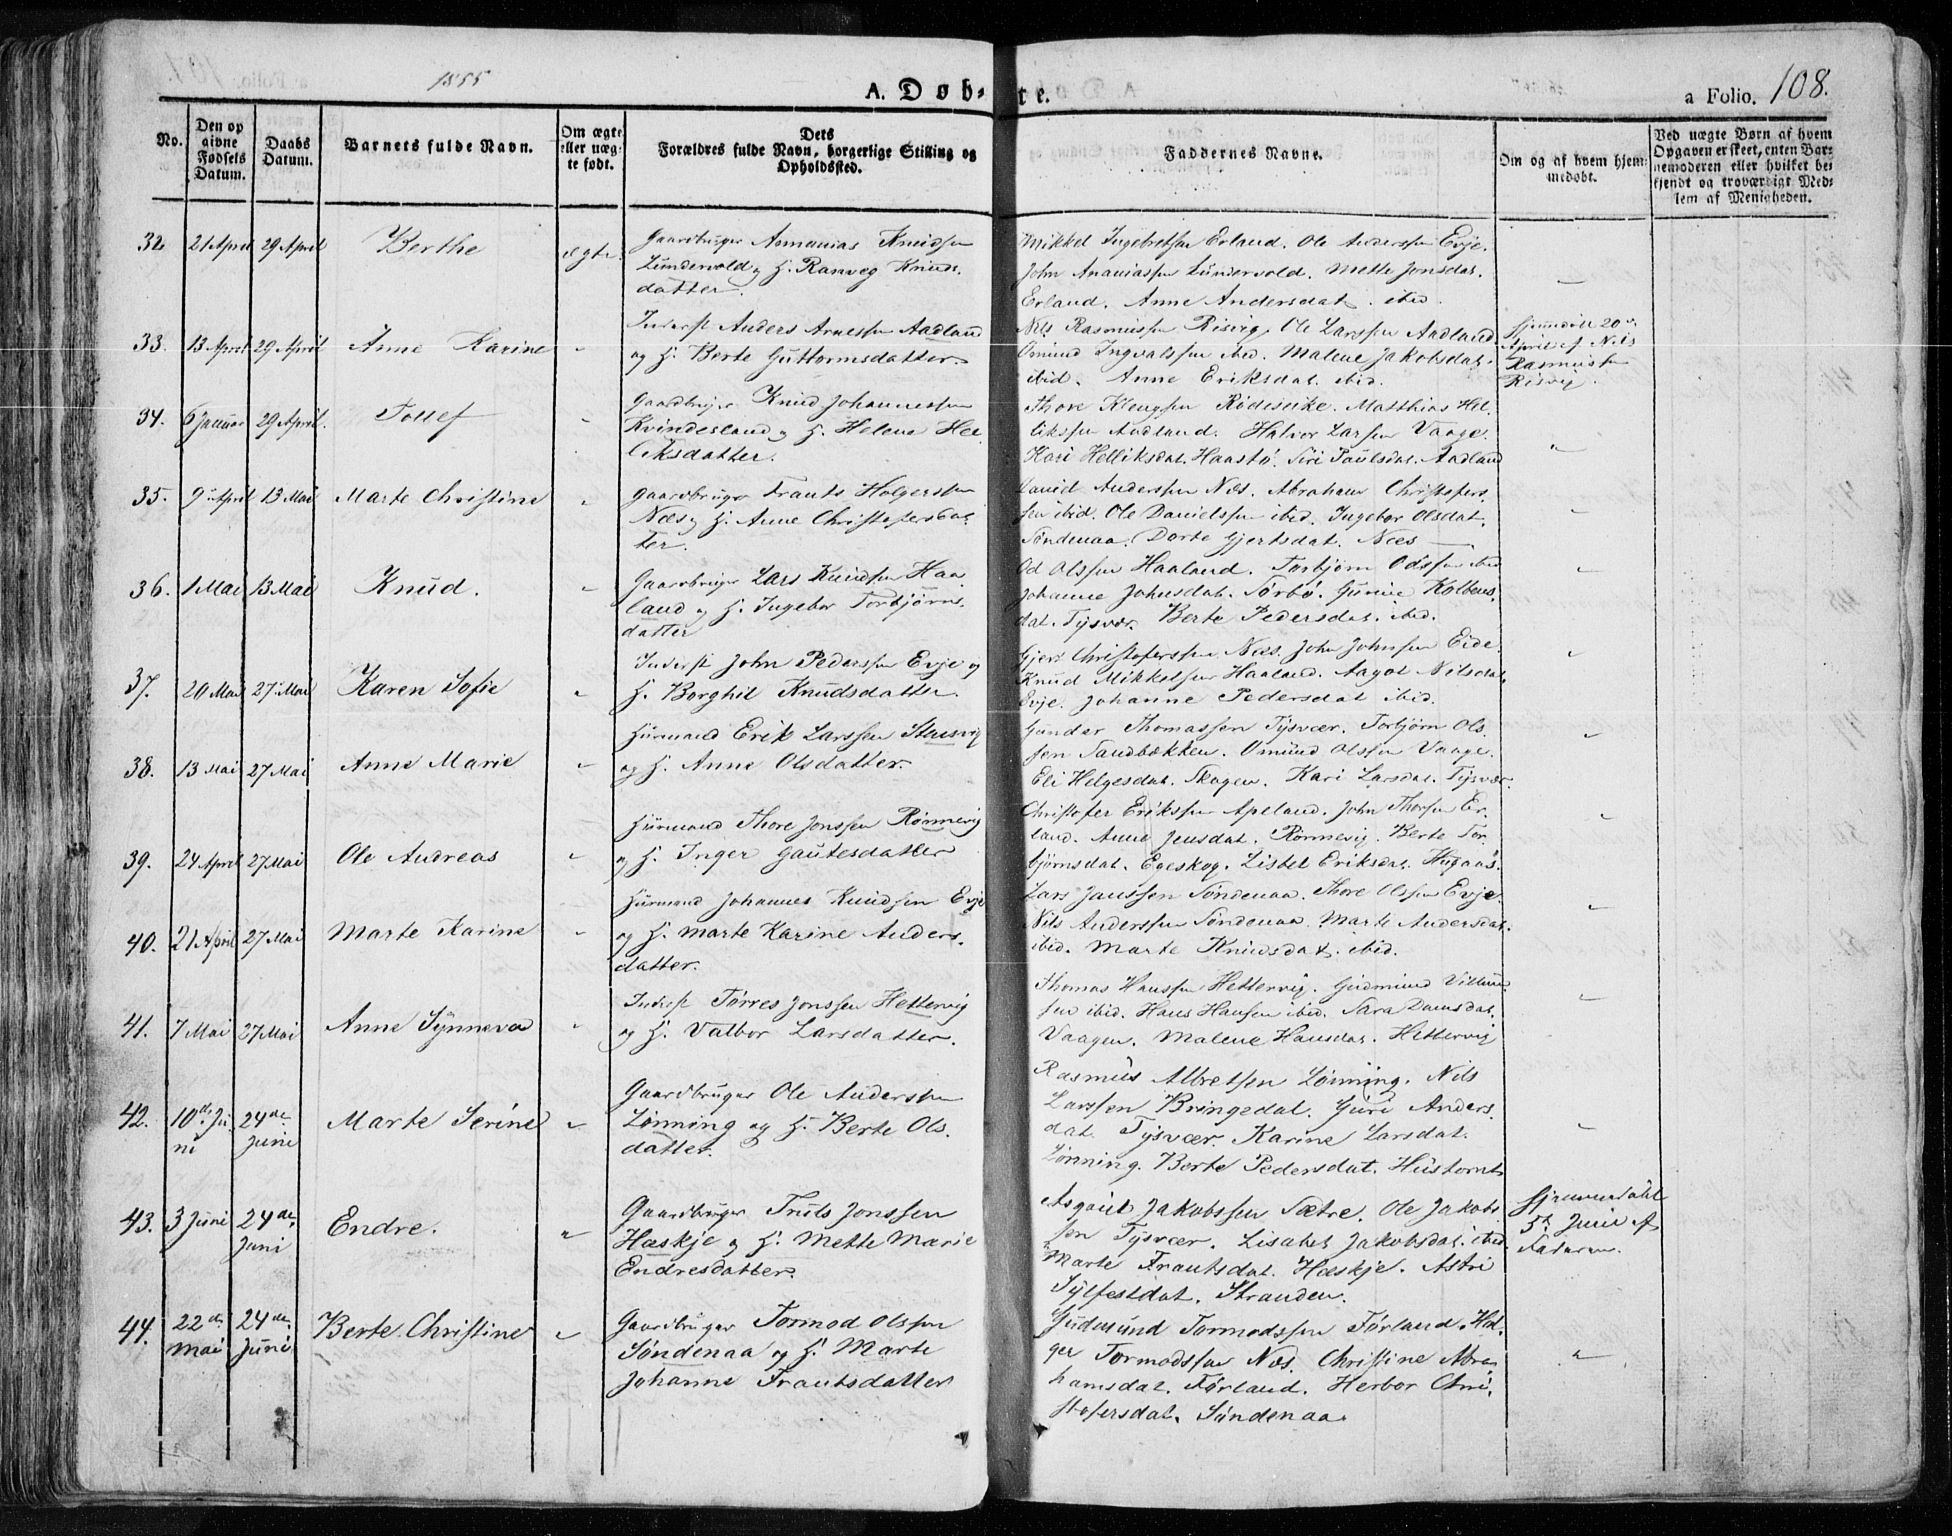 1855
A. Døb-
te.
a Folio. 108.
No.
Den op
givne
Fødsels
Datum.
Daabs
Datum.
Barnets fulde Navn.
Om ægte
eller uæg-
te født.
Dets
Forældres fulde Navn, borgerlige Stilling og
Opholdssted.
Faddernes Navne.
Om og af hvem hjem-
medøbt.
Ved uægte Børn af hvem
Opgaven er skeet, enten Bar-
nemoderen eller hvilket be-
kjendt og troværdigt Med-
lem af Menigheden.
32 21 April 29 April Berthe ægte.
Gaardbruger Annanias Knudsen
Lundevold og H. Ranveg Knuds.
datter.
Mikkel Ingebretsen Erland. Ole Anderssen Evje.
John Ananiassen Lundevold. Mette Jonsdat.
Erland. Anne Andersdat. ibid. —
33. 13 April 29 April Anne Karine "
Inderst Anders Arnessen Aadland
og H. Berte Guttormsdatter.
Nils Rasmussen Risvig. Ole Larssen Aadland
Omund Ingvalssen ibid. Malene Jakobsdat.
ibid. Anne Eriksdat. ibid.
Hjemdøbt 20
April af Nils
Rasmussen
Risvig.
34. 6 Januar 29 April. Tollef "
Gaardbruger Knud Johannessen
Kvindesland og H. Helene Hel
liksdatter.
Thore Klengsen Rødesike. Matthias Hel
likssen Aadland. Halvor Larsen Vaage.
Kari Helliksdat. Haastø. Siri Paulsdat. Aadland "
35. 9 April 13 Mai Marte Christine "
Gaardbruger Frants Holgerssen
Næs og H. Anne Christofersdat
ter.
David Anderssen Næs. Abraham Christofers
sen ibid. Ole Danielssen ibid. Ingebor Olsdat.
Søndenaa. Dorte Gjertsdat. Næs — "
36. 1 Mai 13 Mai Knud. "
Gaardbruger Lars Knudsen Haa
land og H. Ingebor Torbjørns.
datter
Od Olssen Haaland. Torbjørn Odssen ibid
Johanne Johnsdat. Sørbø. Gurine Kolbens.
dat. Tysvær. Berte Pedersdat. ibid. "
37. 20 Mai 27 Mai Karen Sofie "
Inderst John Pederssen Evje og
H. Borghil Knudsdatter.
Gjert Christoferssen Næs. John Johnsen Eide.
Knud Mikkelsen Haaland. Aagot Nilsdat.
Evje. Johanne Pedersdat ibid. "
38. 13 Mai 27 Mai Anne Marie "
Huusmand Erik Larssen Stausvig
og H. Anne Olsdatter.
Gunder Thomassen Tysvær. Torbjørn Ols
sen Sandbækken. Omund Olssen Vaage.
Eli Helgesdat. Skogen. Kari Larsdat. Tysvær. "
39. 24 April 27 Mai Ole Andreas "
Huusmand Thore Jonssen Rønnevig
og H. Inger Gautesdatter
Christofer Erikssen Apeland. John Thorsen Er.
land. Anne Jensdat. Rønnevig. Berte Tor.
bjørnsdat. Egeskog. Lisbet Eriksdat. Hugaas. "
40. 21 April 27 Mai Marte Karine "
Huusmand Johannes Knudsen Evje
og H. Marte Karine Anders.
datter.
Lars Janssen Søndenaa. Thore Olssen Evje.
Nils Anderssen Søndenaa. Marte Andersdat.
ibid. Marte Knudsdat. ibid. "
41. 7 Mai 27 Mai Anne Synneva "
Inderst Tørres Jonssen Hettervig
og H. Valbor Larsdatter.
Thomas Hanssen Hettervig. Gudmund Villum
sen ibid. Hans Hansen ibid. Sara Damsdat.
Vaagen. Malene Hansdat. Hettervig "
42. 10de Ju 24de Marte Serine "
ni Juni
Gaardbruger Ole Anderssen
Lønning og H. Berte Ols.
datter.
Rasmus Albretsen Lønning. Nils
Larssen Bringedal. Guri Anders.
dat. Tysvær. Karine Larsdat.
Lønning. Berte Pedersdat. Hustornt "
43. 3 Juni 24de Endre. "
Juni
Gaardbruger Truls Jonssen
Hæskje og H. Mette Marie
Endresdatter.
Asgout Jakobssen Sætre. Ole Jakobs
sen Tysvær. Lisabet Jakobsdat. ibid.
Marte Frantsdat. Hæskje. Astri
Sylfestdat. Stranden.
Hjemmedøbt
5te Juni af
Faderen.
44. 22de 24de Berte Christine "
Mai Juni
Gaardbruger Tormod Olssen
Søndenaa og H. Marte
Johanne Frantsdatter
Gudmund Tormodssen Førland. Hol
ger Tormodssen Næs. Christine Abra
hamsdat. Førland. Herbor Chri.
stofersdat. Søndenaa. "